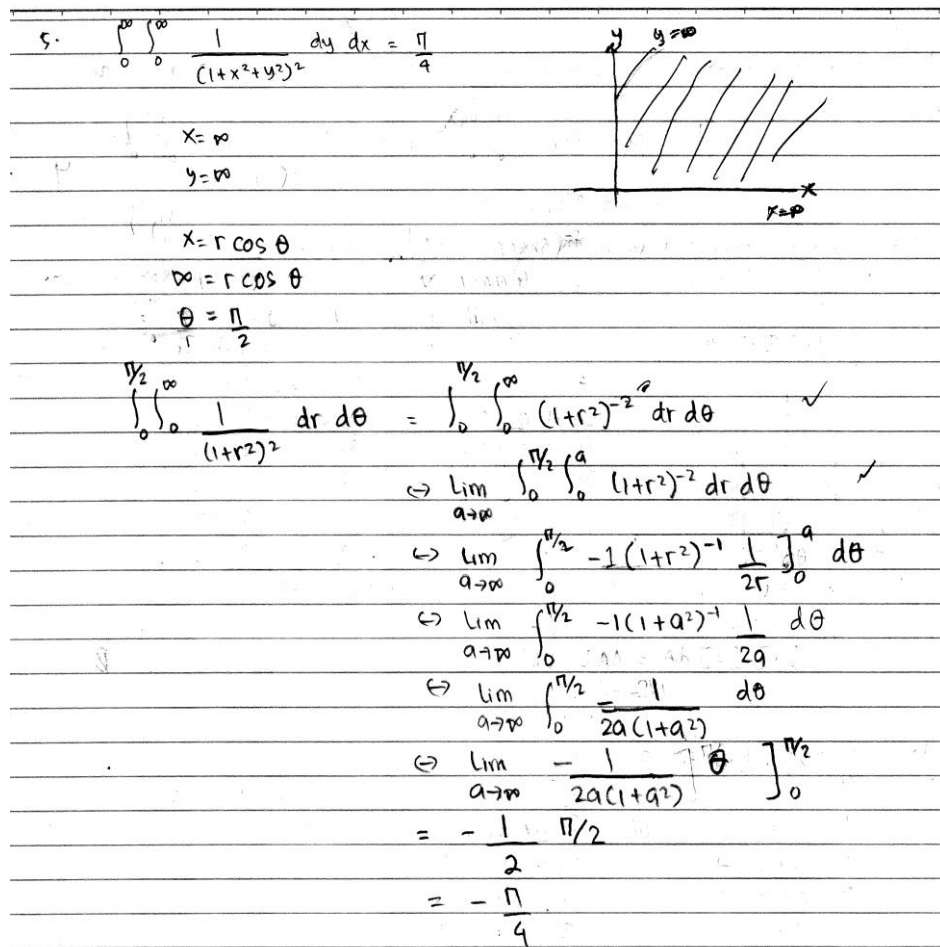 5. ∫₀^∞ ∫₀^∞ 1/(1+x²+y²)² dy dx = π/4
y
y=∞
x
x=∞
x=∞
y=∞
x= r cos θ
∞ = r cos θ
θ = π/2
∫₀^π/2 ∫₀^∞ 1/(1+r²)² dr dθ = ∫₀^π/2 ∫₀^∞ (1+r²)⁻² dr dθ ✓
⇔ Lim a→∞ ∫₀^π/2 ∫₀^a (1+r²)⁻² dr dθ ✓
⇔ Lim a→∞ ∫₀^π/2 -1(1+r²)⁻¹ 1/2r ]₀^a dθ
⇔ Lim a→∞ ∫₀^π/2 -1(1+a²)⁻¹ 1/2a dθ
⇔ Lim a→∞ ∫₀^π/2 - 1/2a(1+a²) dθ
⇔ Lim a→∞ - 1/2a(1+a²) θ ]₀^π/2
= - 1/2 π/2
= - π/4